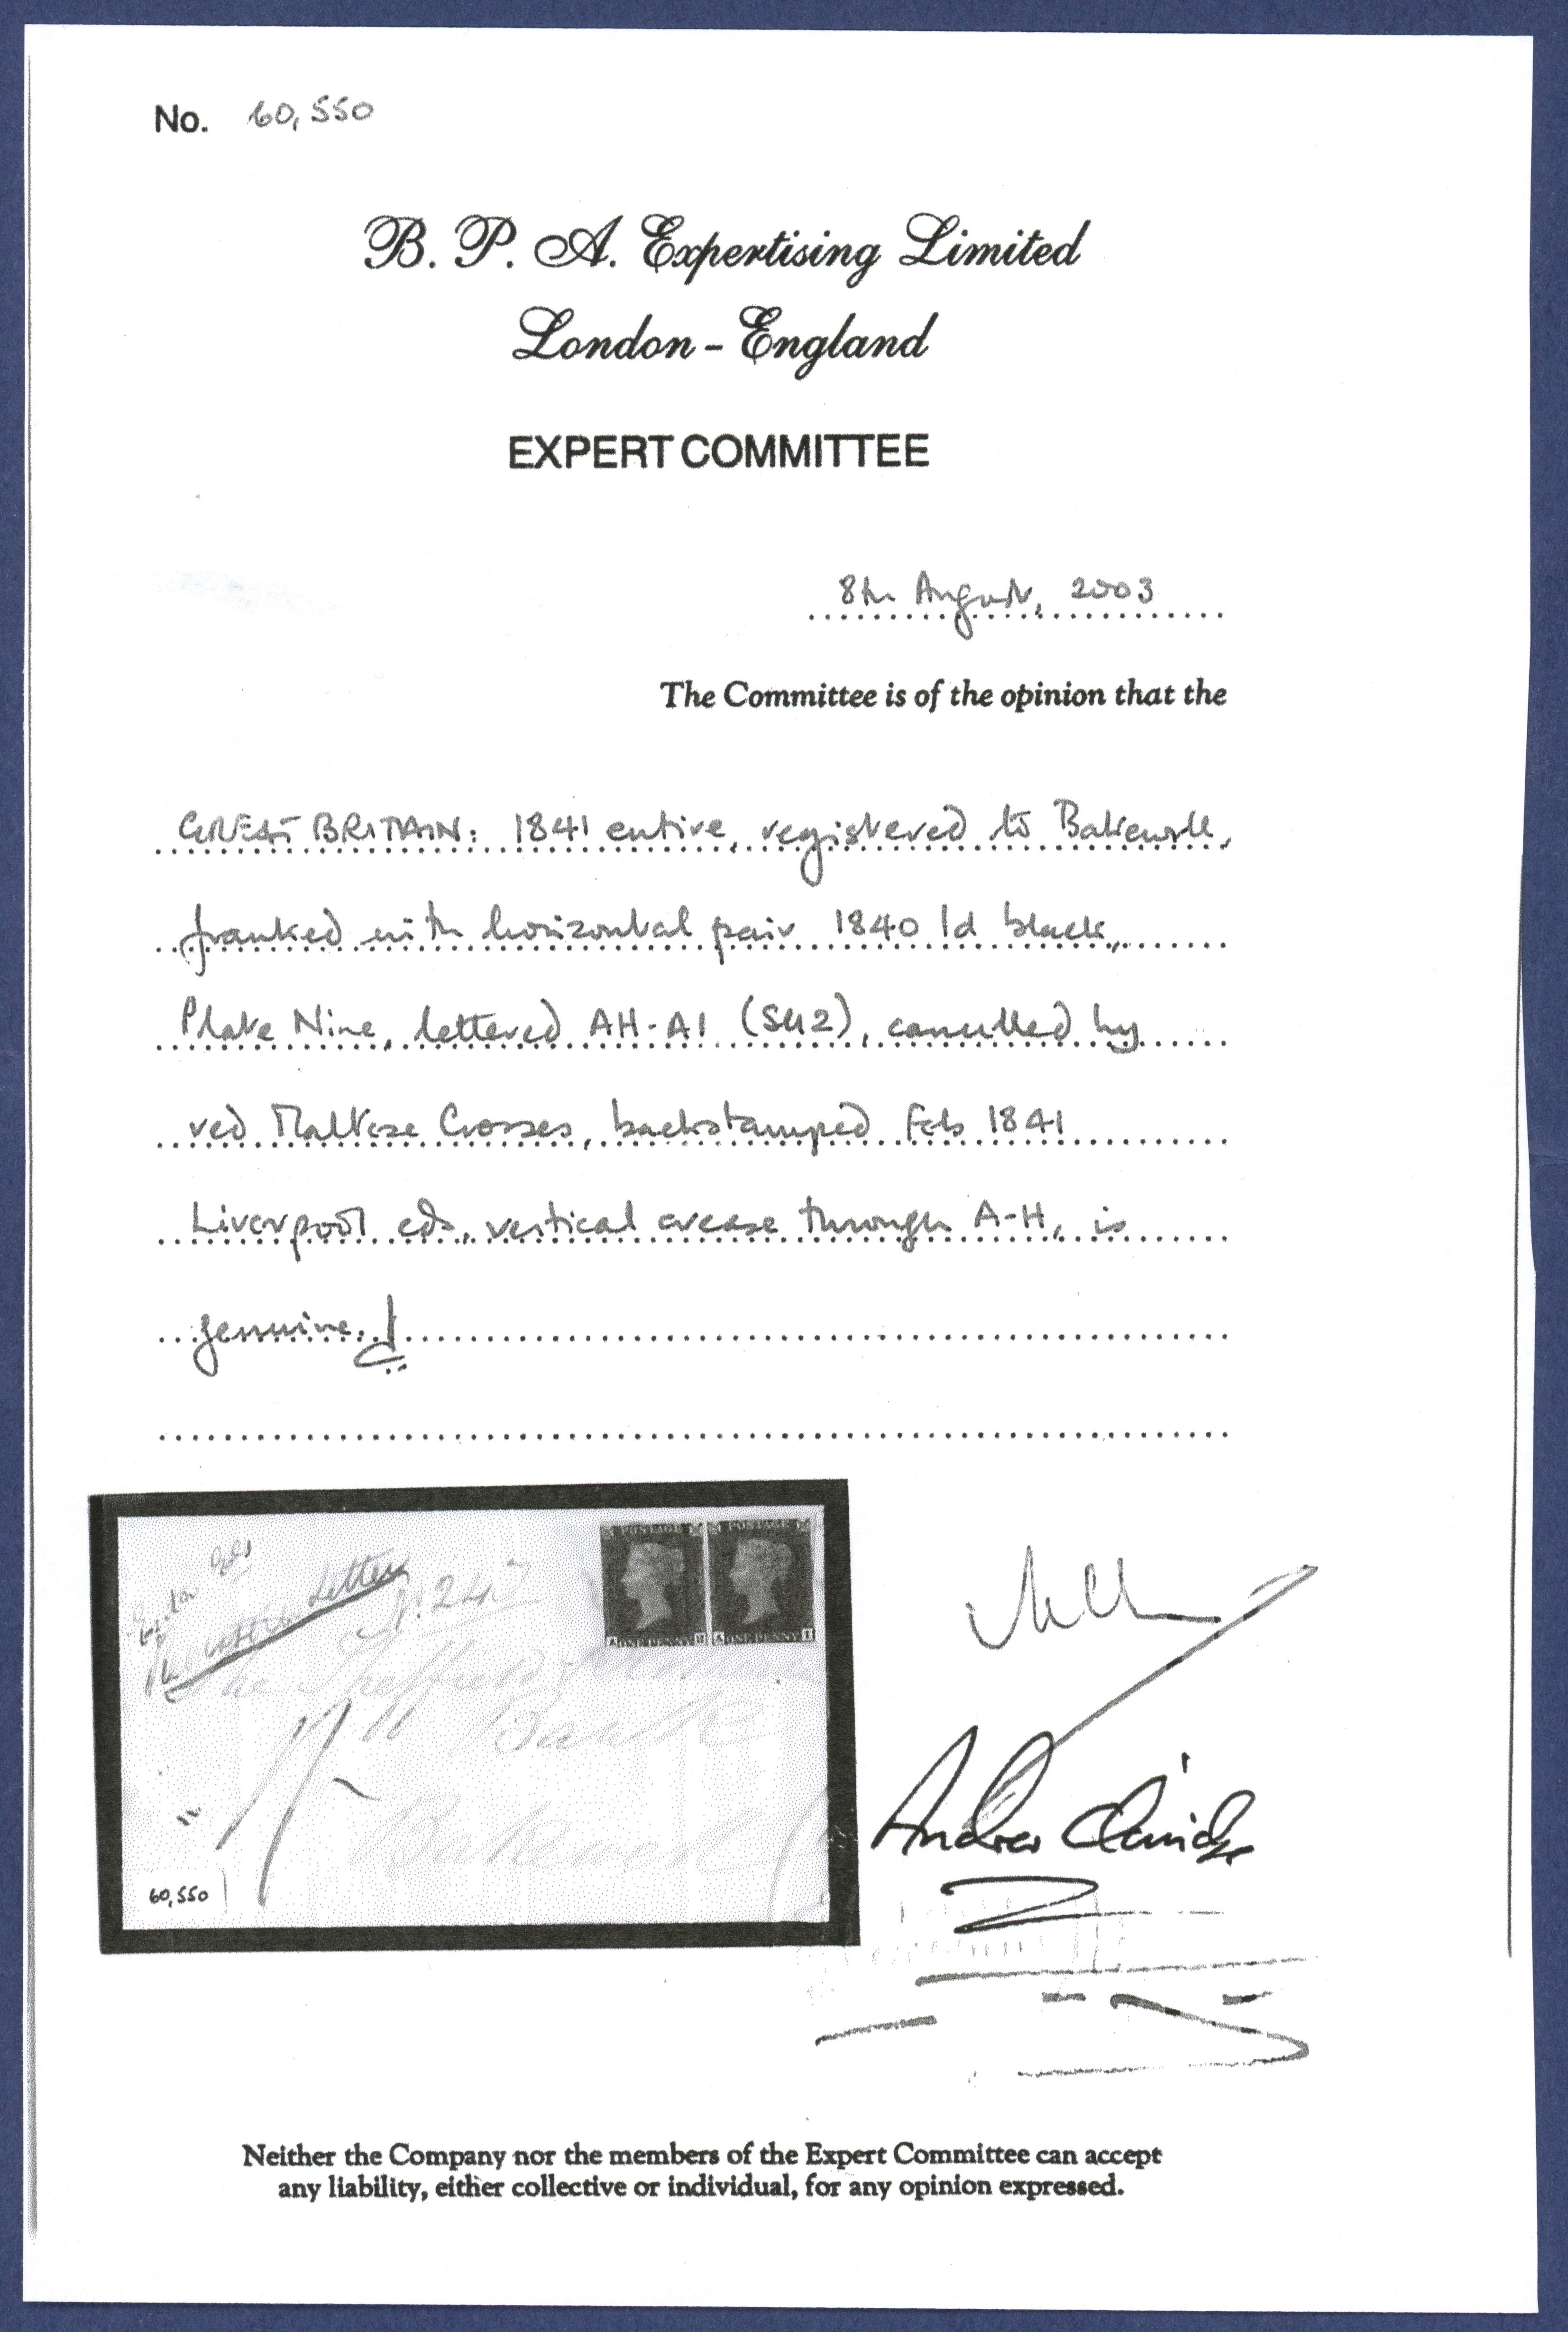 No. 60,550
B. P. A. Expertising Limited
London - England
EXPERT COMMITTEE
8th August, 2003
The Committee is of the opinion that the
GREAT BRITAIN: 1841 entire, registered to Bakewell,
franked with horizontal pair 1840 1d black,
Plate Nine, lettered AH-AI (SG2), cancelled by
red Maltese Crosses, backstamped Feb 1841
Liverpool cds, vertical crease through A-H, is
genuine.
POSTAGE POSTAGE
Letter
A ONE PENNY H A ONE PENNY I
The Sheffield
Bank
Bakewell
60,550
Andrew Claridge
Neither the Company nor the members of the Expert Committee can accept
any liability, either collective or individual, for any opinion expressed.